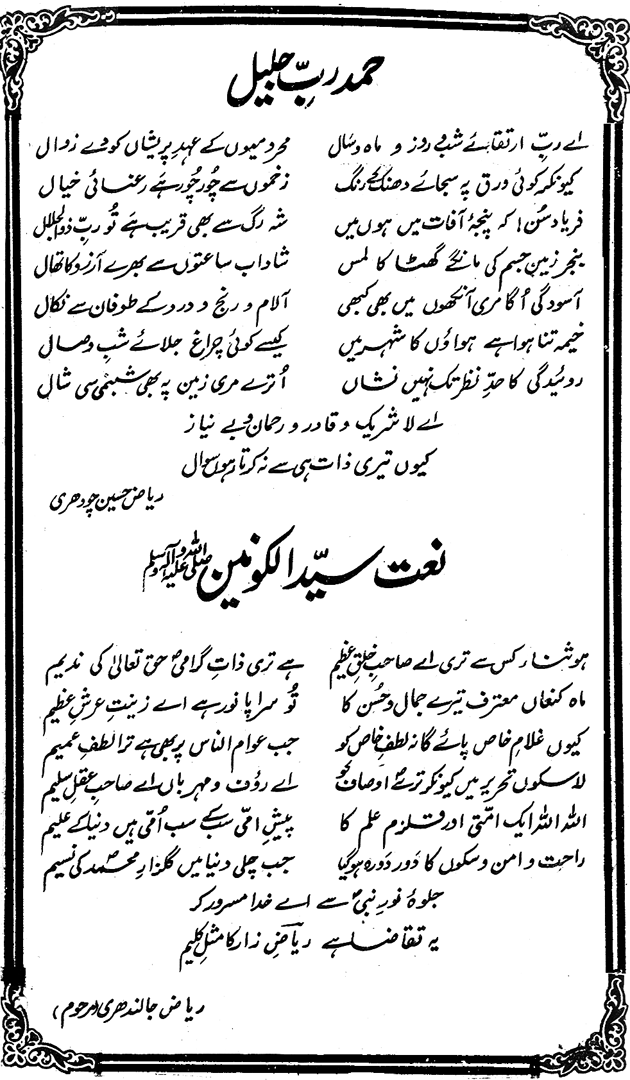 حمد ربِّ جلیل
اے ربِّ ارتقائے شب و روز و ماہ و سال محرومیوں کے عہدِ پریشاں کو دے زوال
کیونکر کوئی ورق پہ سجائے دھنک کے رنگ زخموں سے چُور چُور ہے رعنائیِ خیال
فریاد سُن! کہ پنجۂ آفات میں ہوں میں شہ رگ سے بھی قریب ہے تُو ربِّ ذوالجلال
بنجر زمینِ جسم کی مانگے گھٹا کا لمس شاداب ساعتوں سے بھرے آرزو کا تھال
آسودگی اُگا مری آنکھوں میں بھی کبھی آلام و رنج و درد کے طوفان سے نکال
خیمہ تنا ہوا ہے ہواؤں کا شہر میں کیسے کوئی چراغ جلائے شبِ وصال
روئیدگی کا حدِّ نظر تک نہیں نشاں اُترے مری زمین پہ بھی شبنمی سی شال
اے لا شریک و قادر و رحمان و بے نیاز
کیوں تیری ذات ہی سے نہ کرتا رہوں سوال
ریاض حسین چودھری
نعت سیّد الکونین صلی اللہ علیہ وآلہ وسلم
ہو ثنا رکس سے تری اے صاحبِ خلقِ عظیم ہے تری ذاتِ گرامیؐ حق تعالیٰ کی ندیم
ماہِ کنعاں معترف تیرے جمال و حُسن کا تُو سراپا نور ہے اے زینتِ عرشِ عظیم
کیوں غلامِ خاص پائے گا نہ لطفِ خاص کو جب عوام الناس پر بھی ہے ترا لطفِ عمیم
لا سکوں تحریر میں کیونکر ترےؐ اوصاف کو اے رؤف و مہرباں اے صاحبِ عقلِ سلیم
اللہ اللہ ایک اُمّی اور قلزم علم کا پیشِ اُمّی سب کے سب اُمّی ہیں دنیا کے علیم
راحت و امن و سکوں کا دَور دَورہ ہو گیا جب چلی دنیا میں گلزارِ محمدؐ کی نسیم
جلوۂ نورِ نبیؐ سے اے خدا مسرور کر
یہ تقاضا ہے ریاضِؔ زار کا مثلِ کلیم
ریاض جالندھری (مرحوم)